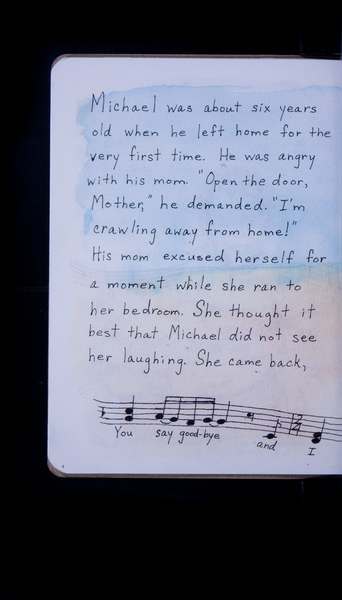 Michael was about six years
old when he left home for the
very first time. He was angry
with his mom. "Open the door,
Mother," he demanded. "I'm
crawling away from home!"
His mom excused herself for
a moment while she ran to
her bedroom. She thought it
best that Michael did not see
her laughing. She came back,
You say good-bye and I